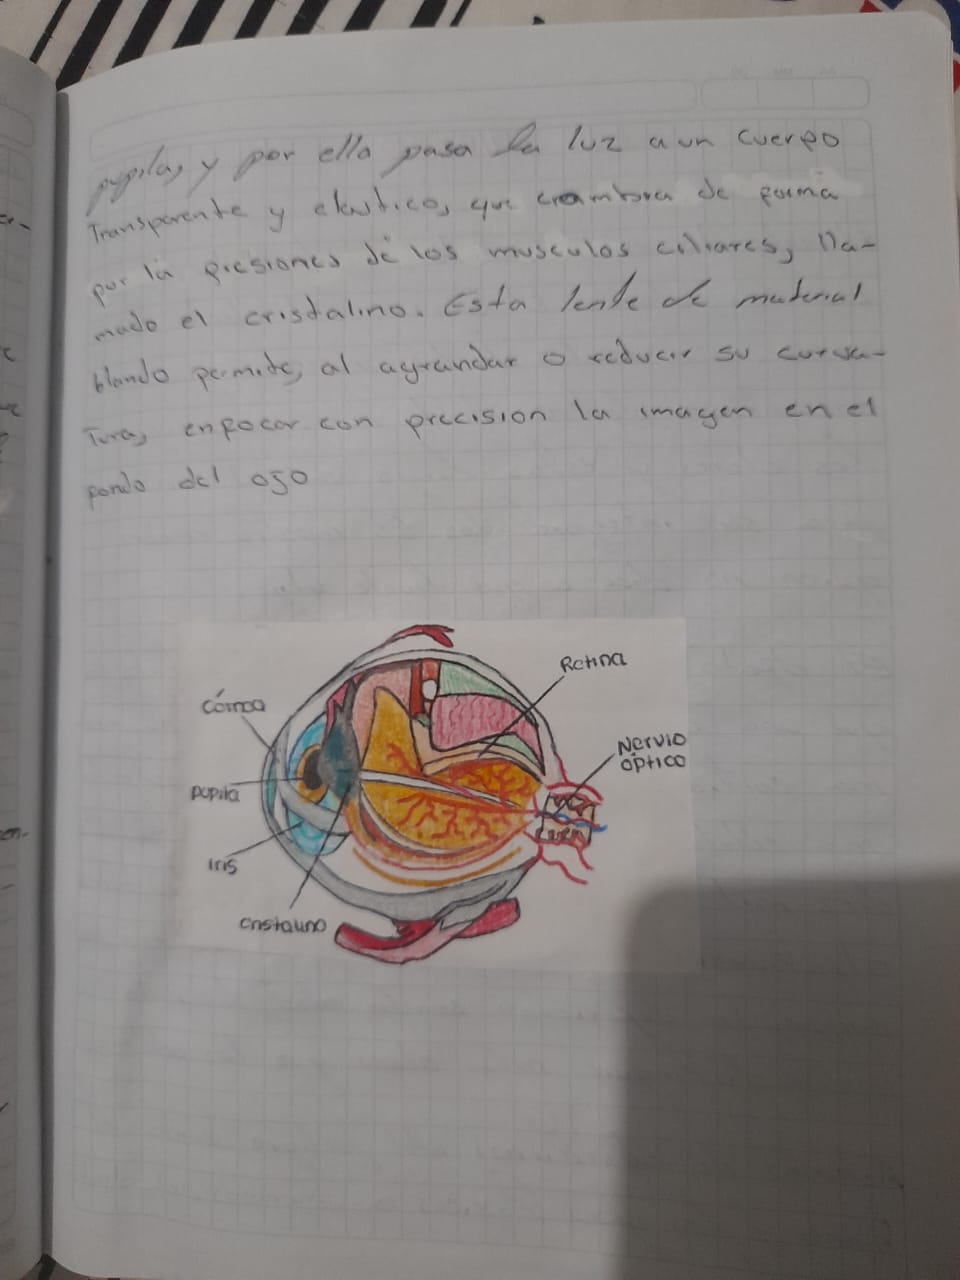 pupila, y por ella pasa la luz a un cuerpo
Transparente y elastico, que crambia de forma
por la presiones de los musculos ciliares, lla-
mado el cristalino. Esta lente de material
blando permite, al agrandar o reducir su curva-
Tura, enfocar con precision la imagen en el
fondo del ojo
Retina
Córnea
Nervio
óptico
pupila
Iris
cristalino